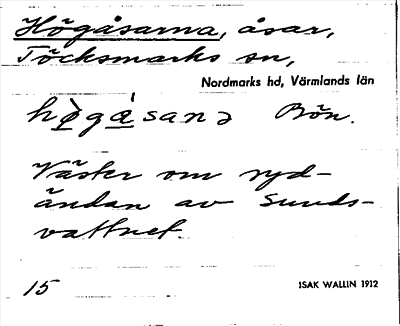 Högåsarna, åsar,
Töcksmarks sn,
Nordmarks hd, Värmlands län
hø̀gá̱sana Bön.
Väster om syd-
ändan av Sunds-
vattnet.
15
ISAK WALLIN 1912